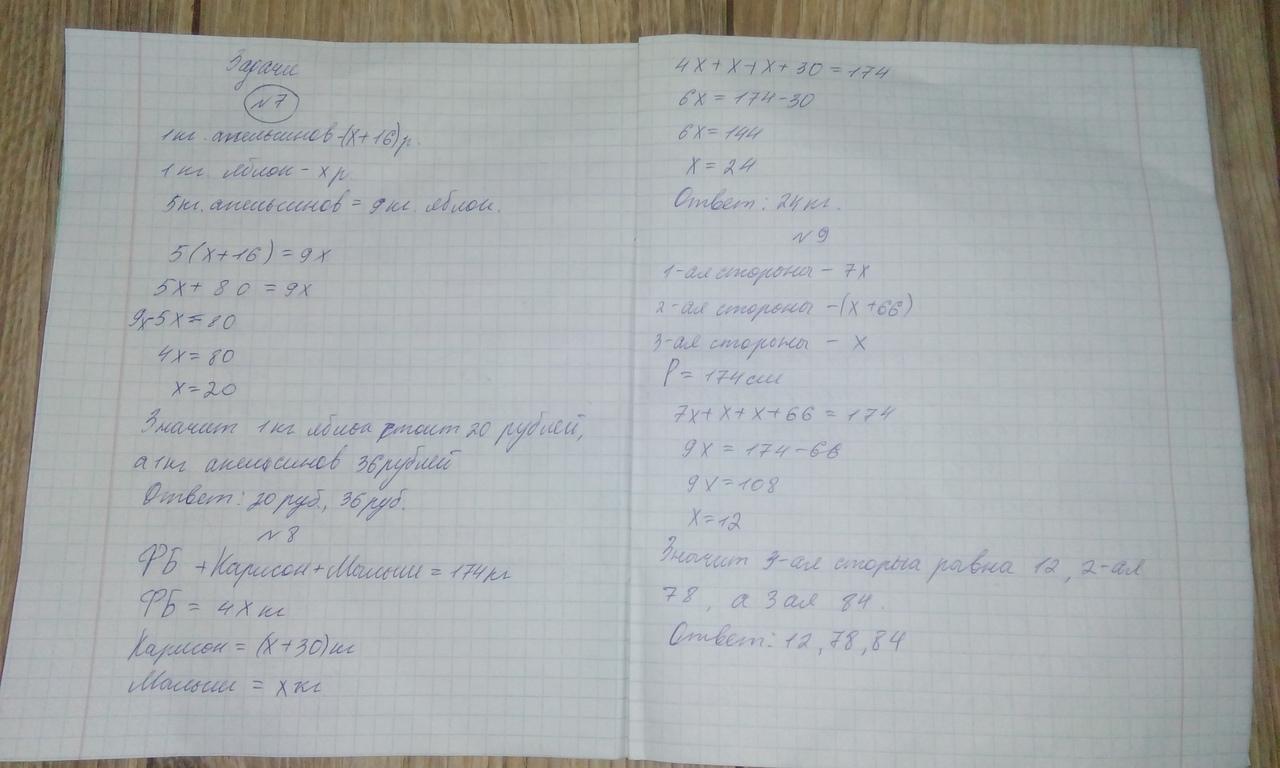 Задачи
№7
1 кг. апельсинов -(x+16) р.
1 кг. яблок - x р
5 кг. апельсинов = 9 кг. яблок.
5(x+16) = 9x
5x + 80 = 9x
9x-5x=80
4x = 80
x=20
Значит 1 кг яблок стоит 20 рублей,
а 1 кг апельсинов 36 рублей
Ответ: 20 руб., 36 руб.
№8
ФБ + Карлсон + Малыш = 174 кг
ФБ = 4x кг
Карлсон = (x+30) кг
Малыш = x кг
4x + x + x + 30 = 174
6x = 174-30
6x = 144
x = 24
Ответ: 24 кг.
№9
1-ая стороны - 7x
2-ая стороны -(x+66)
3-ая стороны - x
P = 174 см
7x+x+x+66 = 174
9x = 174-66
9x = 108
x=12
Значит 3-ая сторна равна 12, 2-ая
78, а 3 ая 84.
Ответ: 12, 78, 84